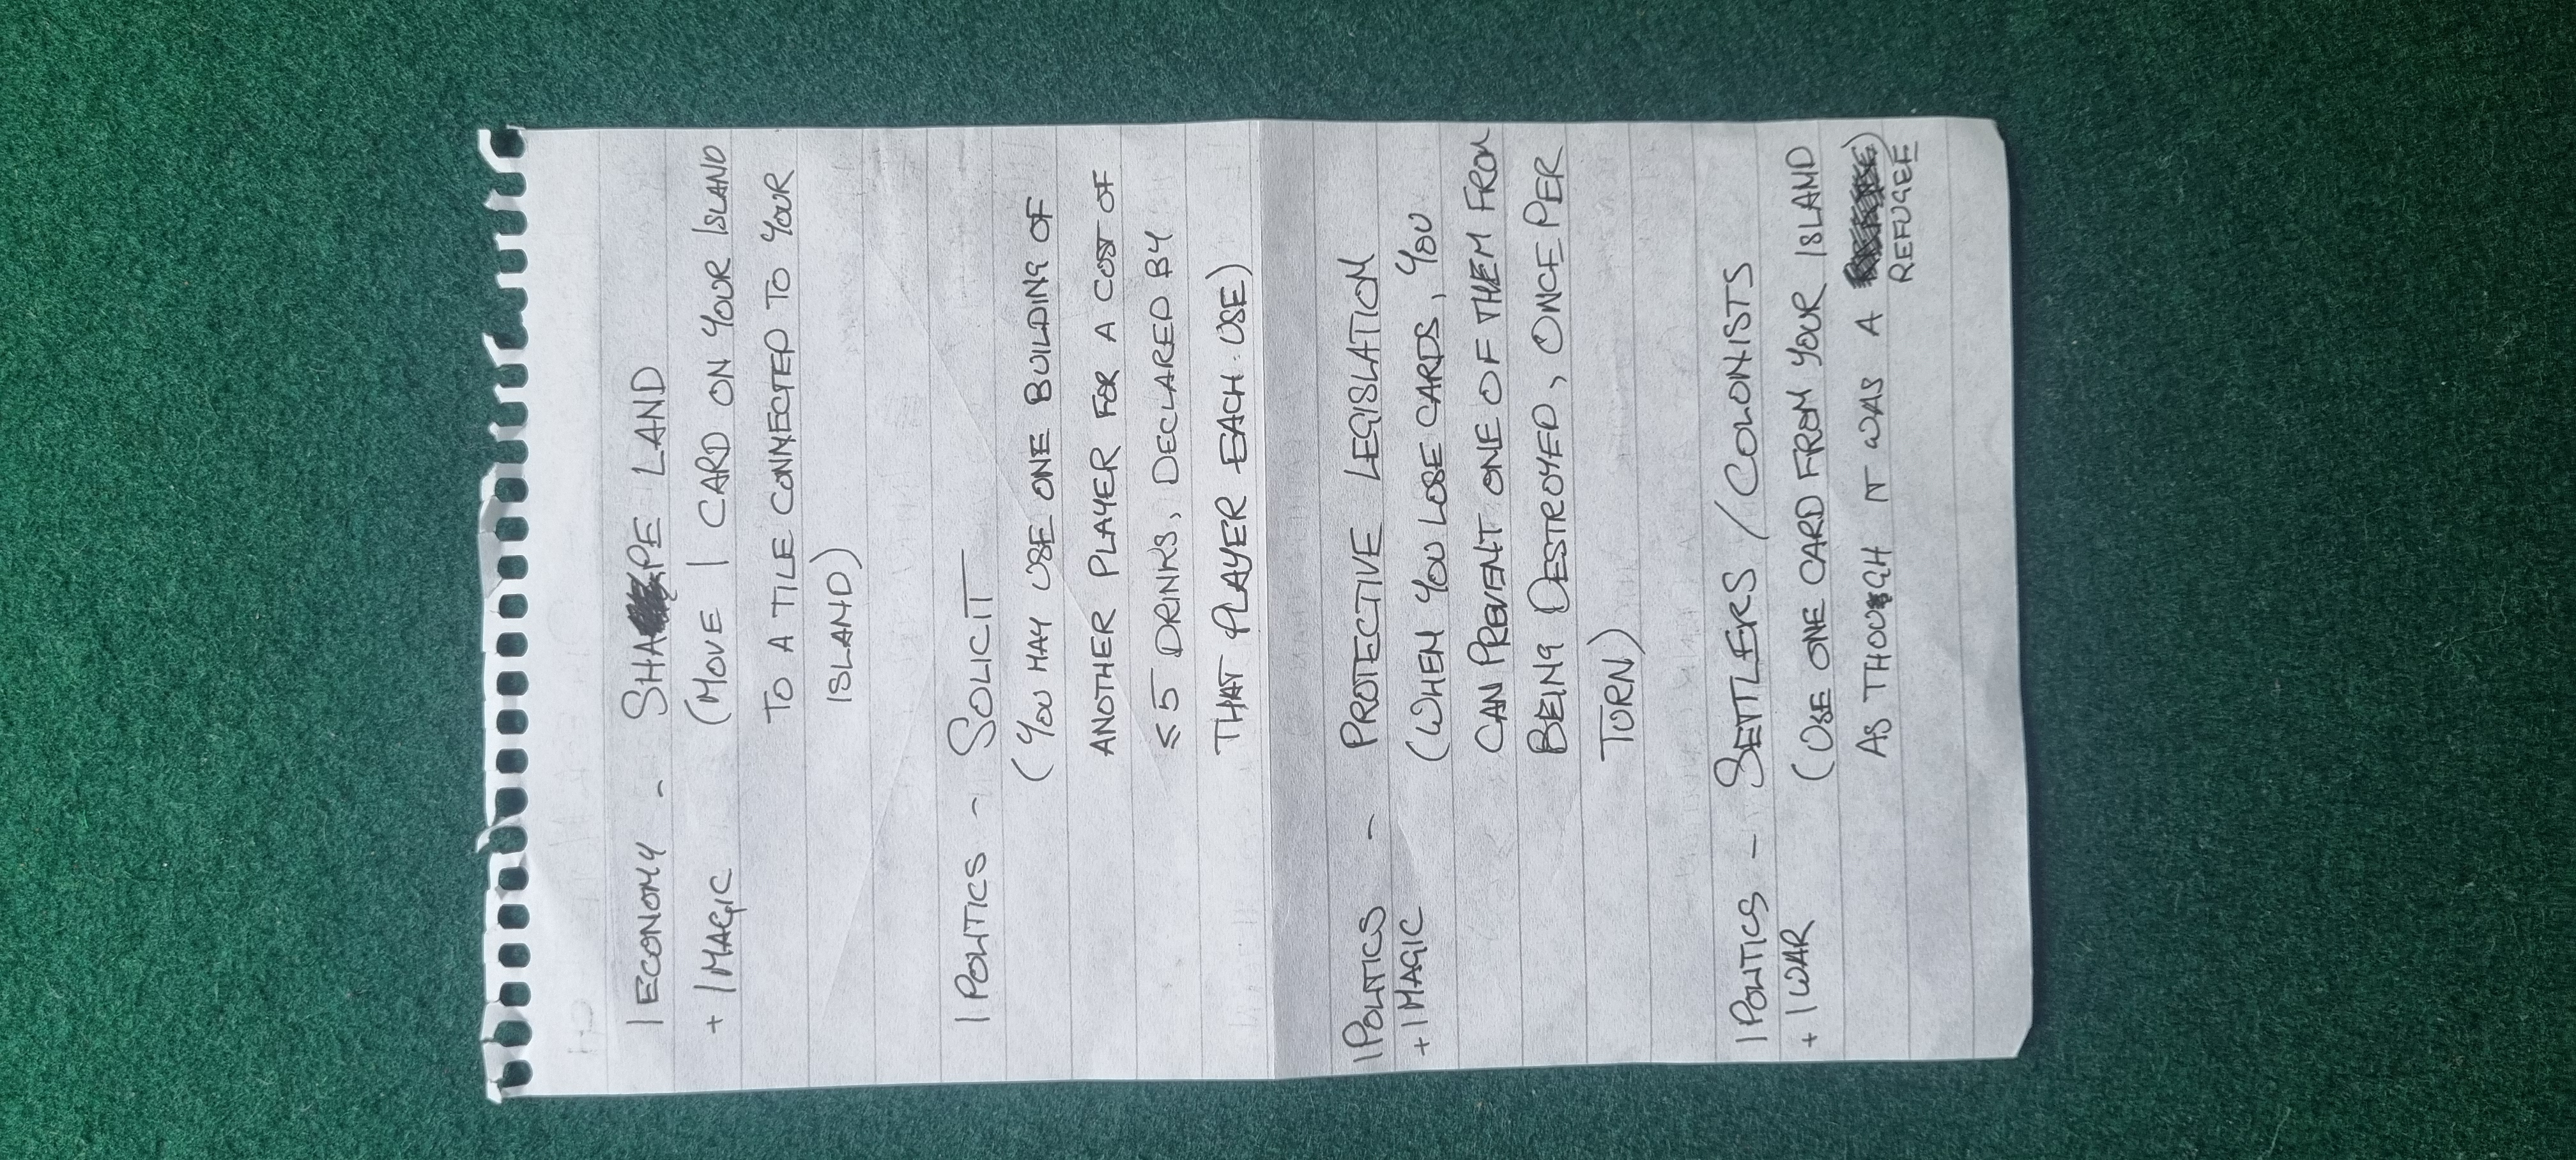 1 ECONOMY - SHAPE LAND
+ 1 MAGIC (MOVE 1 CARD ON YOUR ISLAND
TO A TILE CONNECTED TO YOUR
ISLAND)
1 POLITICS - SOLICIT
(YOU MAY USE ONE BUILDING OF
ANOTHER PLAYER FOR A COST OF
≤ 5 DRINKS, DECLARED BY
THAT PLAYER EACH USE)
1 POLITICS - PROTECTIVE LEGISLATION
+ 1 MAGIC (WHEN YOU LOSE CARDS, YOU
CAN PREVENT ONE OF THEM FROM
BEING DESTROYED, ONCE PER
TURN)
1 POLITICS - SETTLERS / COLONISTS
+ 1 WAR (USE ONE CARD FROM YOUR ISLAND
AS THOUGH IT WAS A )
REFUGEE